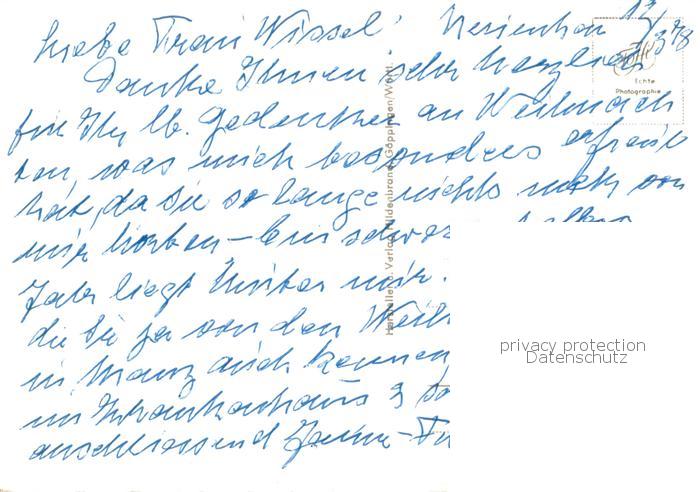 Liebe Frau Wissel!
Danke Ihnen sehr herzlich
für Ihr lb. Gedenken an Weihnach
ten, was mich besonders erfreut
hat, da Sie so lange nichts mehr von
mir hörten – Ein schwe
Jahr liegt hinter mir.
die Sie ja von den Weih
in Mainz auch kennen
im Krankenhaus 3
anschliessend
Echte
Photographie
Göppingen/Württ
privacy protection
Datenschutz